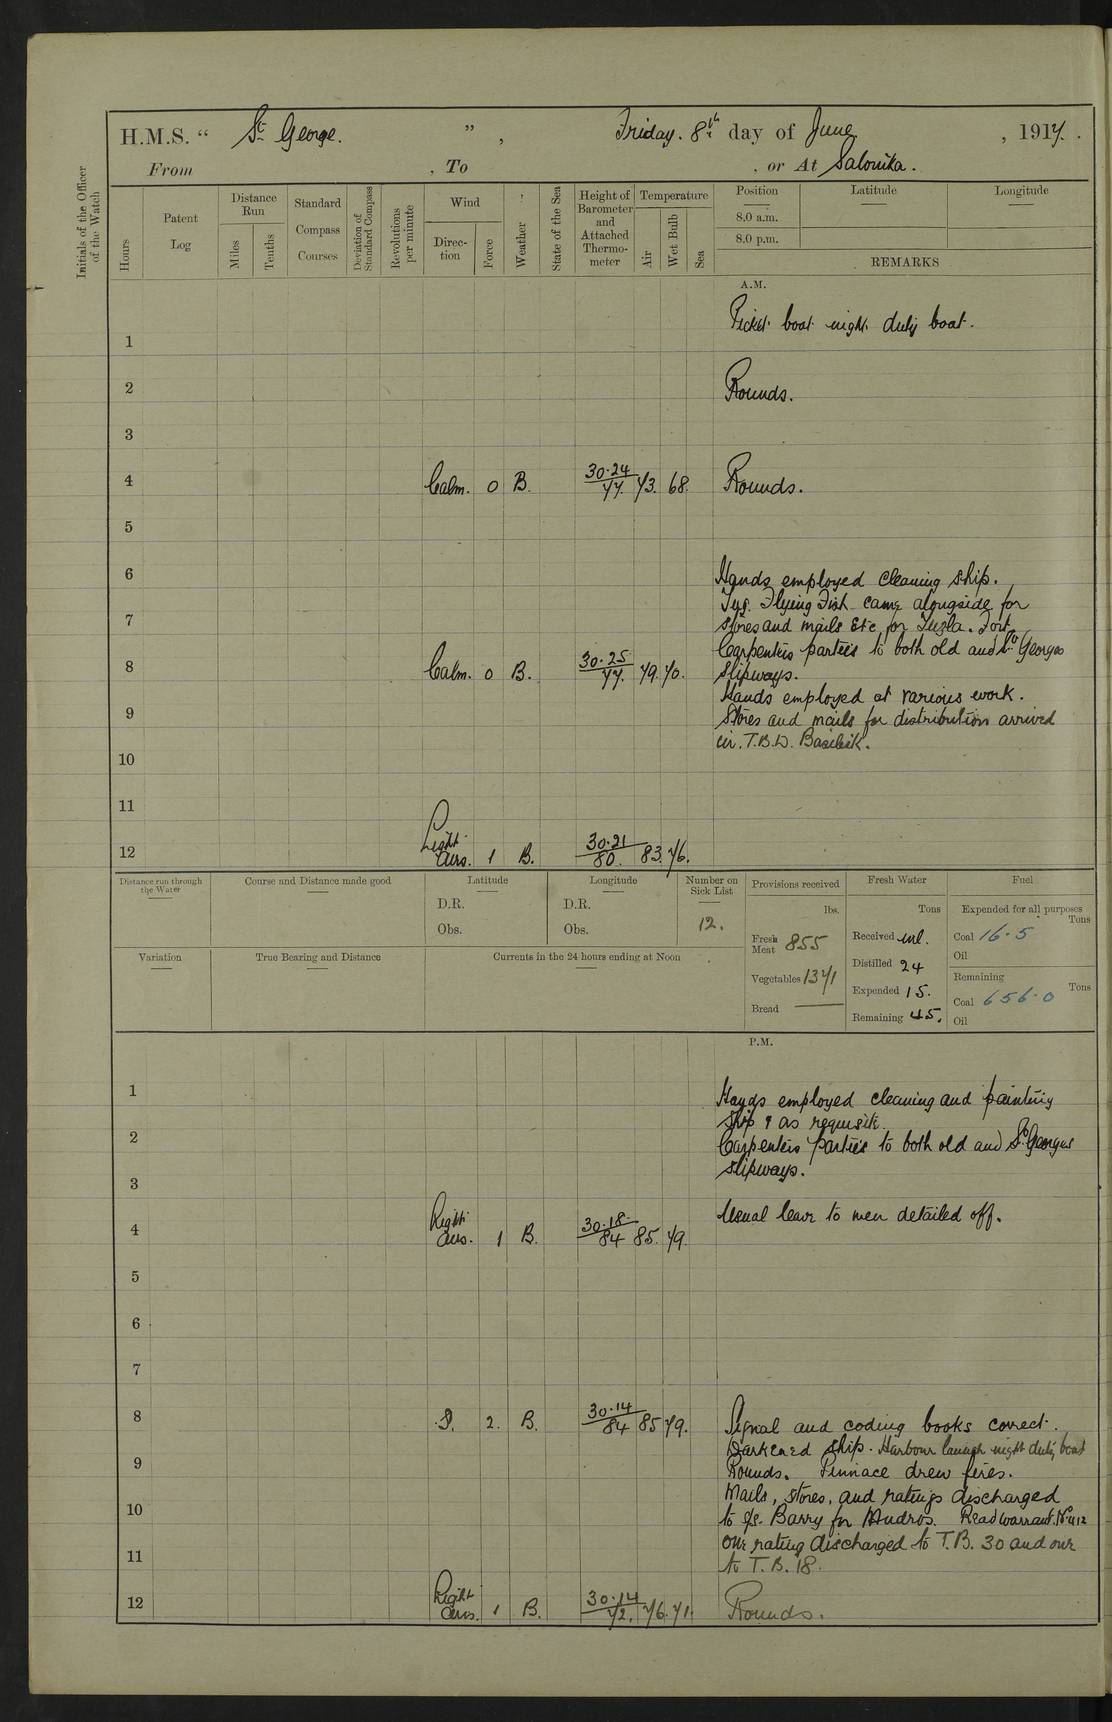 H.M.S. “ St George. ” , Friday. 8th day of June , 1917.
From , To , or At Salonika.
Initials of the Officer of the Watch
Hours
Patent Log
Distance Run
Miles
Tenths
Standard Compass Courses
Deviation of Standard Compass
Revolutions per minute
Wind
Direction
Force
Weather
State of the Sea
Height of Barometer and Attached Thermometer
Temperature
Air
Wet Bulb
Sea
Position
8.0 a.m.
8.0 p.m.
Latitude
Longitude
REMARKS
A.M.
Picket boat night duty boat.
1
2 Rounds.
3
4 Calm. 0 B. 30.24 / 77. 73. 68. Rounds.
5
6 Hands employed cleaning ship.
Tug. Flying Fish came alongside for
7 stores and mails Etc for Tuzla. Fort.
Carpenters parties to both old and St Georges
8 Calm. 0 B. 30.25 / 77. 79. 70. slipways.
Hands employed at various work.
9 Stores and mails for distribution arrived
in. T.B.D. Basilisk.
10
11
12 Light airs. 1 B. 30.21 / 80. 83. 76.
Distance run through the Water
Course and Distance made good
Latitude
D.R.
Obs.
Longitude
D.R.
Obs.
Number on Sick List
12.
Provisions received
lbs.
Fresh Meat 855
Vegetables 1371
Bread
Fresh Water
Tons
Received nil.
Distilled 24
Expended 15.
Remaining 45.
Fuel
Expended for all purposes
Tons
Coal 16.5
Oil
Remaining
Tons
Coal 656.0
Oil
Variation
True Bearing and Distance
Currents in the 24 hours ending at Noon
P.M.
1 Hands employed cleaning and painting
ship & as requisite.
2 Carpenters parties to both old and St Georges
slipways.
3
Usual leave to men detailed off.
4 Light airs. 1 B. 30.18 / 84 85. 79.
5
6
7
8 S. 2. B. 30.14 / 84 85 79. Signal and coding books correct.
Darkened ship. Harbour launch night duty boat
9 Rounds. Pinnace drew fires.
Mails, stores, and ratings discharged
10 to s/s. Barry for Mudros. Read warrant. No 412
one rating discharged to T.B. 30 and one
11 to T.B. 18.
12 Light airs. 1 B. 30.14 / 72. 76. 71. Rounds.